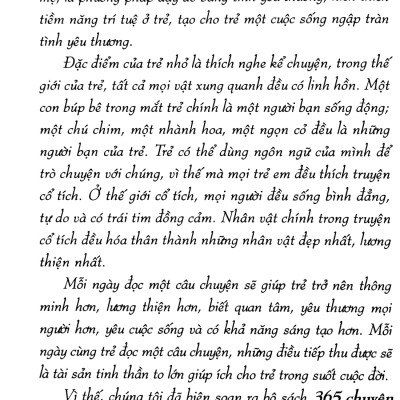 tiềm năng trí tuệ ở trẻ, tạo cho trẻ một cuộc sống ngập tràn
tình yêu thương.
Đặc điểm của trẻ nhỏ là thích nghe kể chuyện, trong thế
giới của trẻ, tất cả mọi vật xung quanh đều có linh hồn. Một
con búp bê trong mắt trẻ chính là một người bạn sống động;
một chú chim, một nhành hoa, một ngọn cỏ đều là những
người bạn của trẻ. Trẻ có thể dùng ngôn ngữ của mình để
trò chuyện với chúng, vì thế mà mọi trẻ em đều thích truyện
cổ tích. Ở thế giới cổ tích, mọi người đều sống bình đẳng,
tự do và có trái tim đồng cảm. Nhân vật chính trong truyện
cổ tích đều hóa thân thành những nhân vật đẹp nhất, lương
thiện nhất.
Mỗi ngày đọc một câu chuyện sẽ giúp trẻ trở nên thông
minh hơn, lương thiện hơn, biết quan tâm, yêu thương mọi
người hơn, yêu cuộc sống và có khả năng sáng tạo hơn. Mỗi
ngày cùng trẻ đọc một câu chuyện, những điều tiếp thu được sẽ
là tài sản tinh thần to lớn giúp ích cho trẻ trong suốt cuộc đời.
Vì thế, chúng tôi đã biên soạn ra bộ sách 365 chuyện